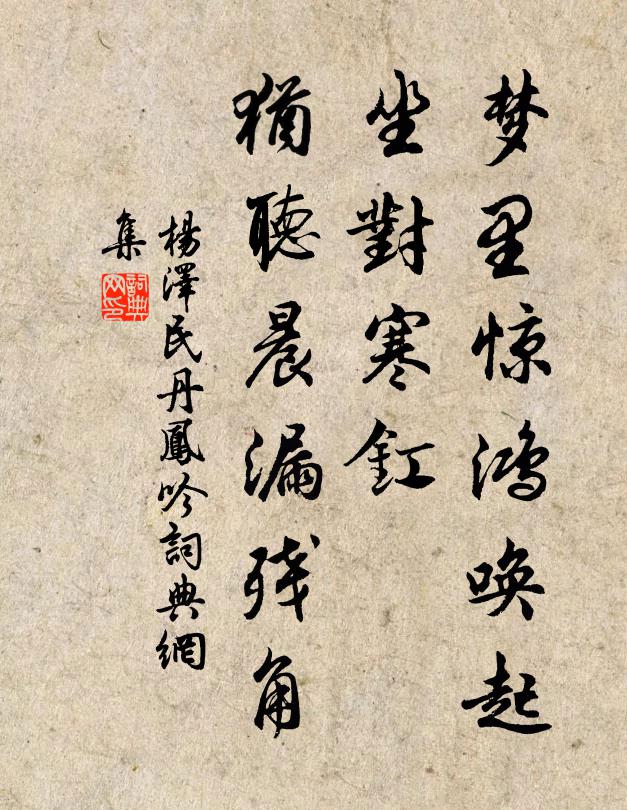 梦里惊鸿唤起
坐對寒釭
猶聽晨漏残角
楊澤民丹鳳吟詞典網
集
詞典网印